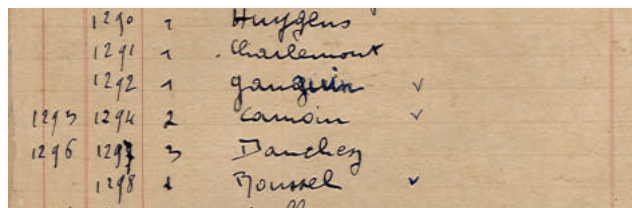 1290 2 Huygens
1291 1 Charlemont
1292 1 gauguin ✓
1293 1294 2 Camoin ✓
1296 1297 3 Dauchez
1298 1 Roussel ✓